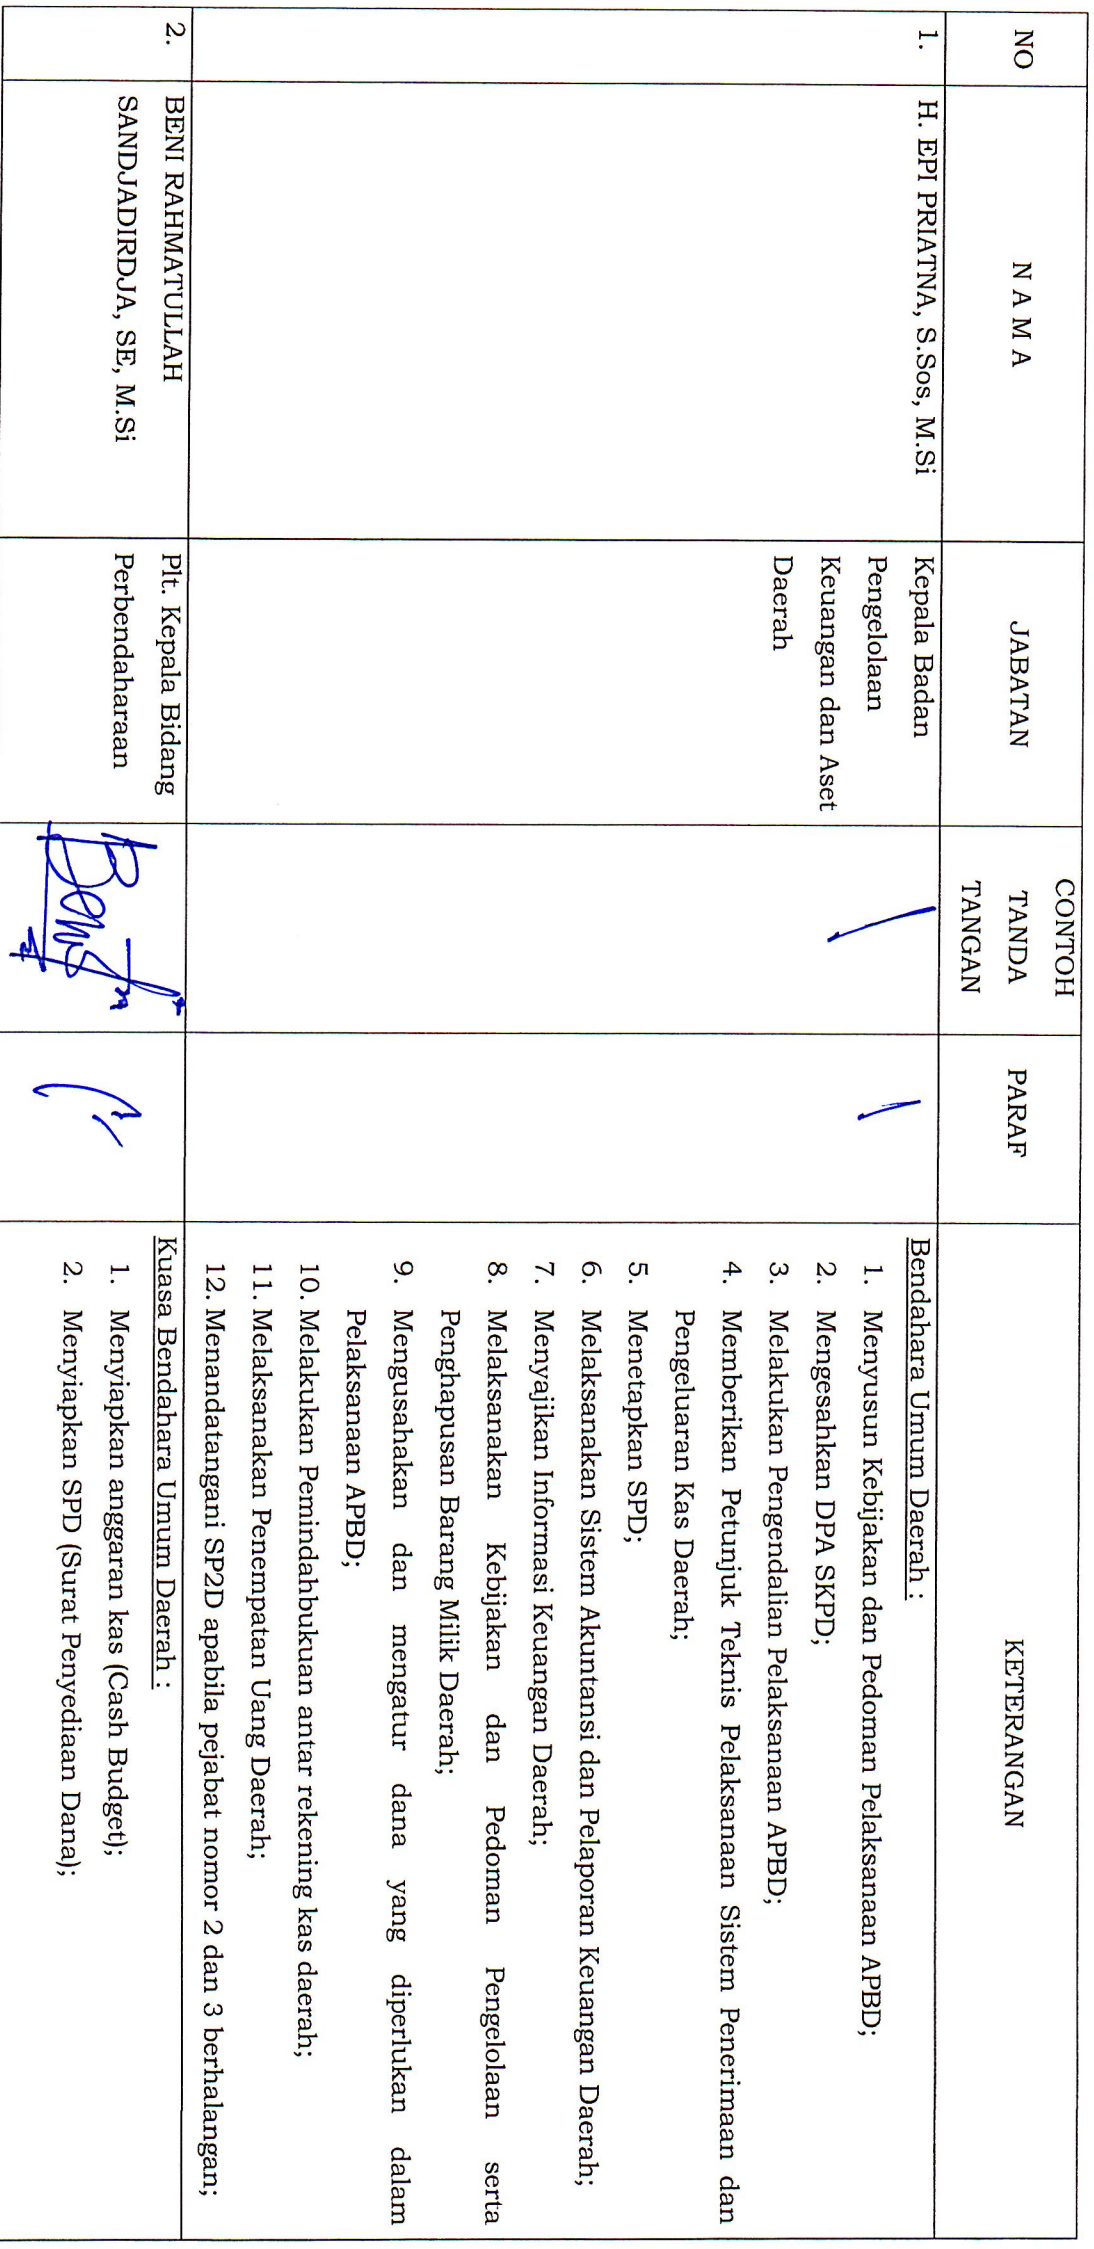 NO
N A M A
JABATAN
CONTOH
TANDA
TANGAN
PARAF
KETERANGAN
1.
H. EPI PRIATNA, S.Sos, M.Si
Kepala Badan
Pengelolaan
Keuangan dan Aset
Daerah
Bendahara Umum Daerah :
1. Menyusun Kebijakan dan Pedoman Pelaksanaan APBD;
2. Mengesahkan DPA SKPD;
3. Melakukan Pengendalian Pelaksanaan APBD;
4. Memberikan Petunjuk Teknis Pelaksanaan Sistem Penerimaan dan
Pengeluaran Kas Daerah;
5. Menetapkan SPD;
6. Melaksanakan Sistem Akuntansi dan Pelaporan Keuangan Daerah;
7. Menyajikan Informasi Keuangan Daerah;
8. Melaksanakan Kebijakan dan Pedoman Pengelolaan serta
Penghapusan Barang Milik Daerah;
9. Mengusahakan dan mengatur dana yang diperlukan dalam
Pelaksanaan APBD;
10. Melakukan Pemindahbukuan antar rekening kas daerah;
11. Melaksanakan Penempatan Uang Daerah;
12. Menandatangani SP2D apabila pejabat nomor 2 dan 3 berhalangan;
2.
BENI RAHMATULLAH
SANDJADIRDJA, SE, M.Si
Plt. Kepala Bidang
Perbendaharaan
Kuasa Bendahara Umum Daerah :
1. Menyiapkan anggaran kas (Cash Budget);
2. Menyiapkan SPD (Surat Penyediaan Dana);